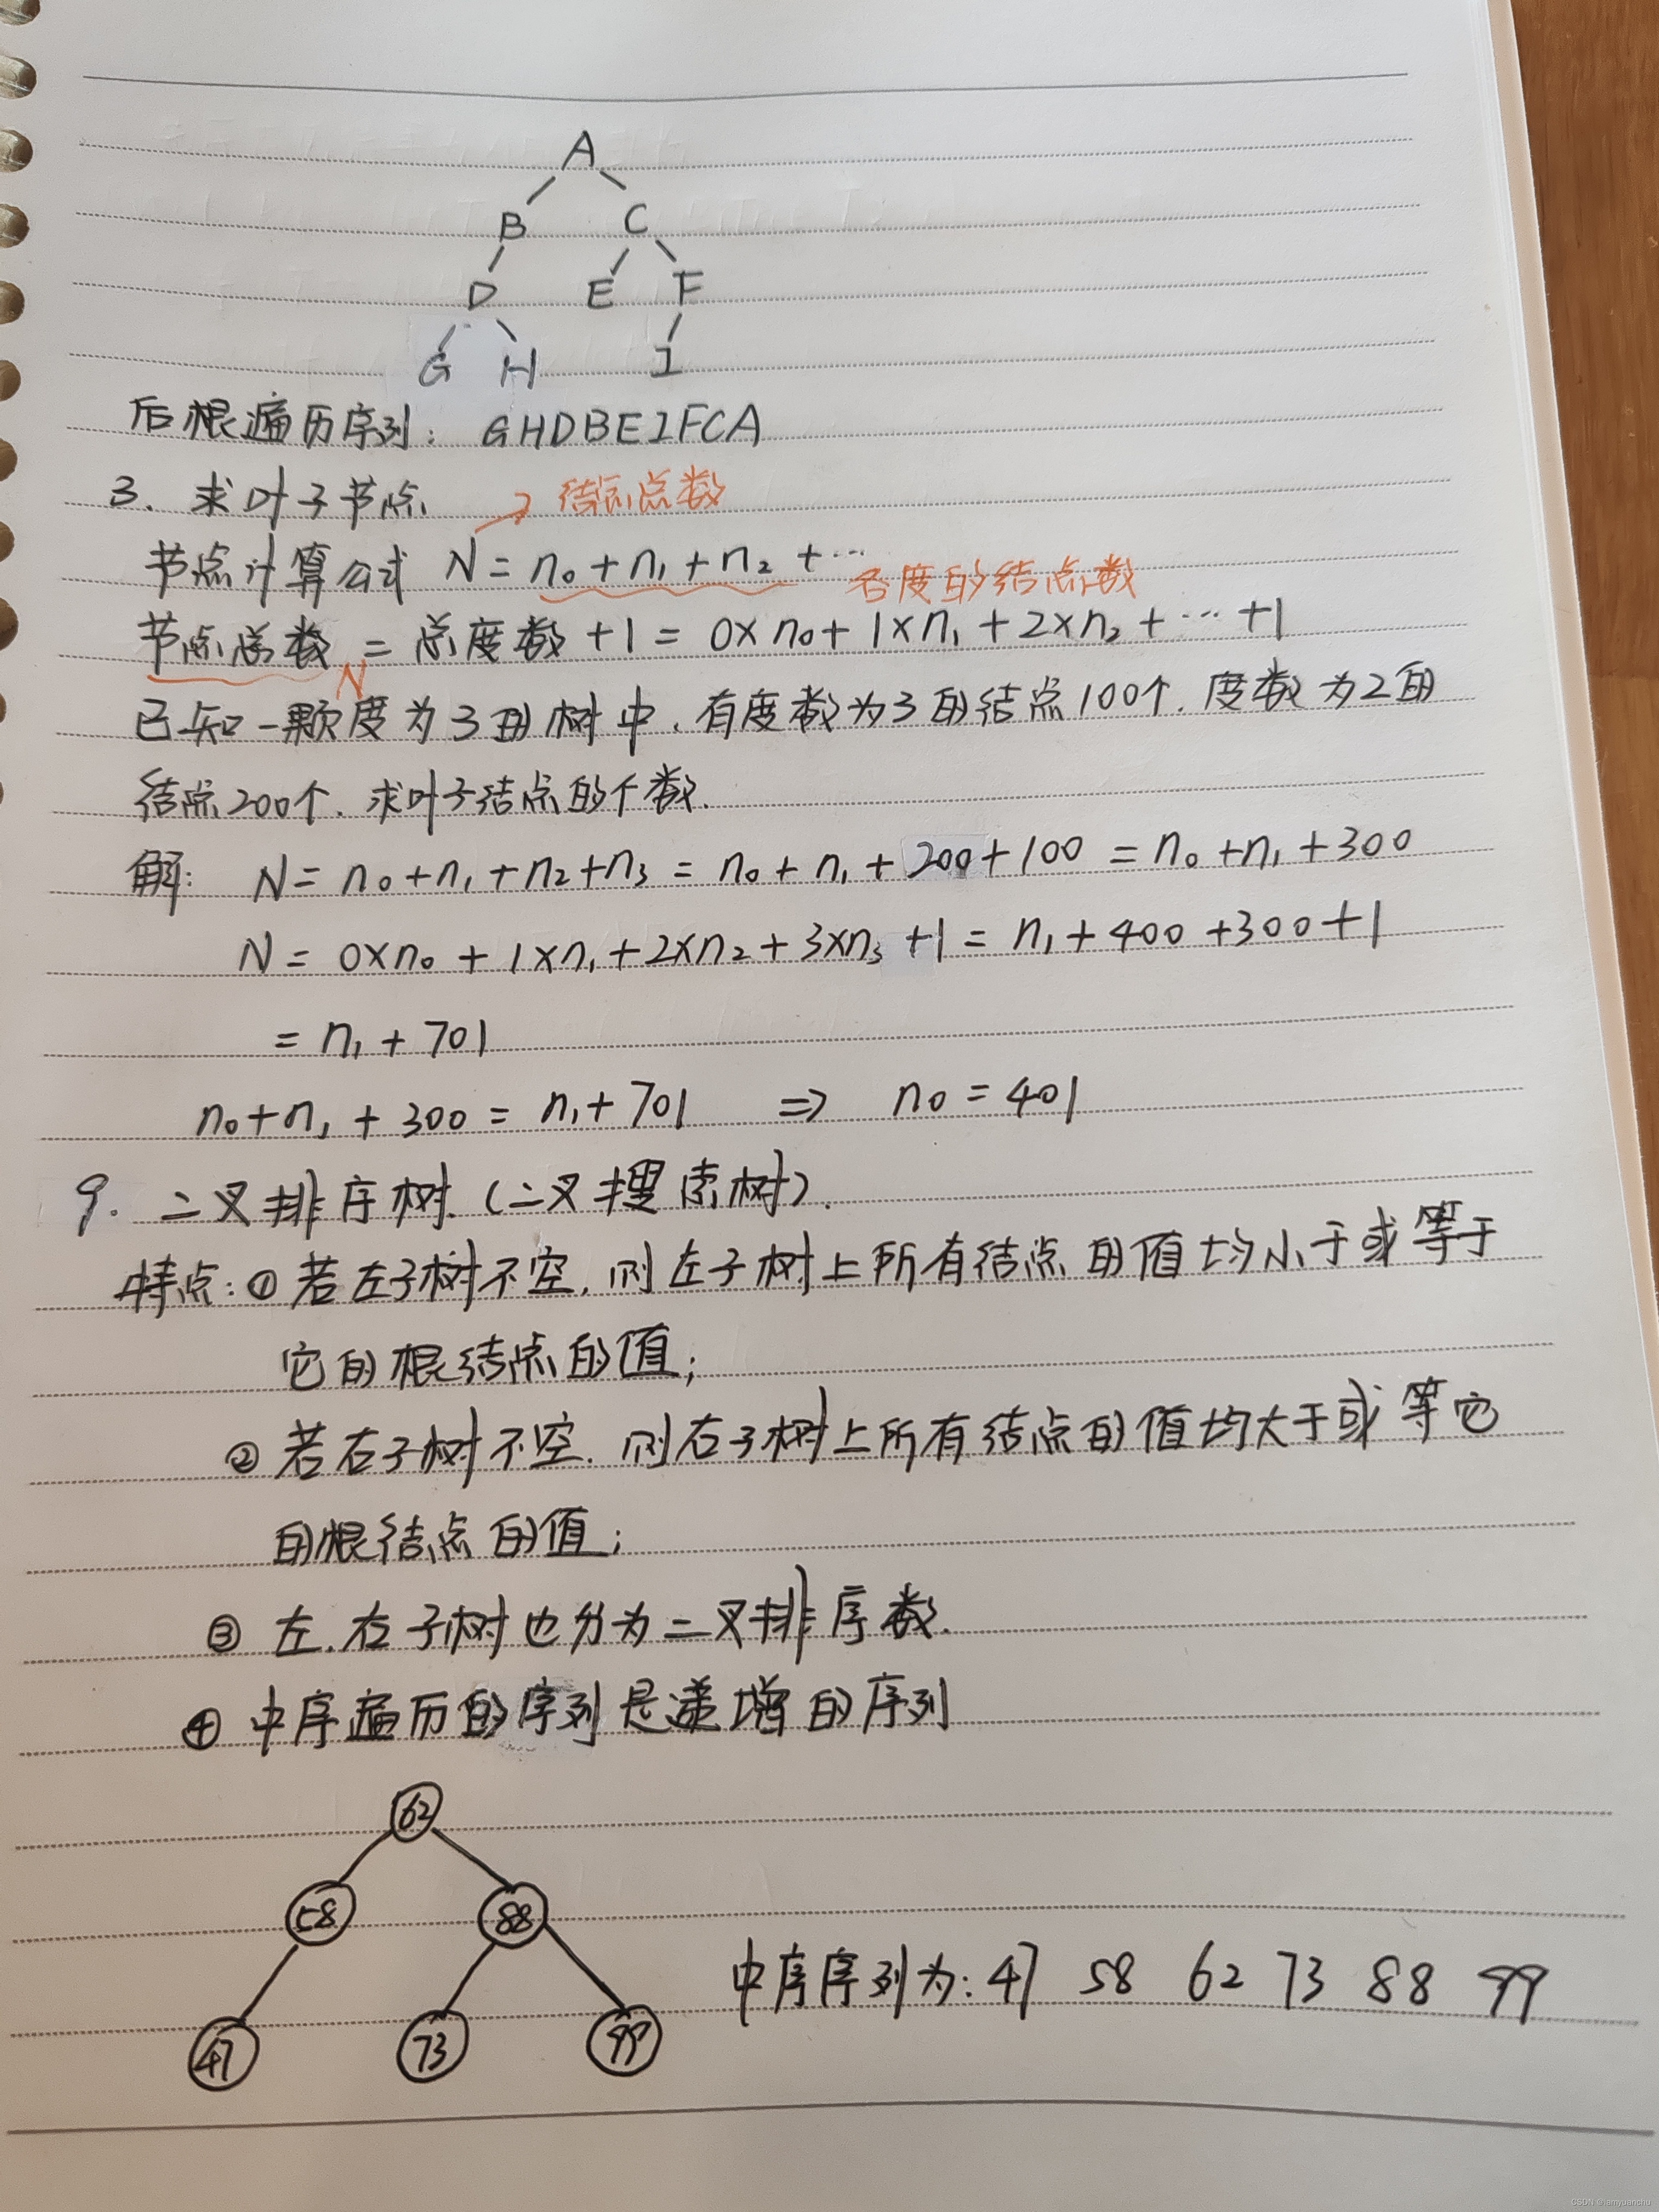 A
B C
D E F
G H I
后根遍历序列: GHDBEIFCA
3. 求叶子节点
→ 结点点数
节点计算公式 N = n₀ + n₁ + n₂ + …
各度的结点数
节点总数 = 总度数 + 1 = 0×n₀ + 1×n₁ + 2×n₂ + … + 1
N
已知一颗度为3的树中,有度数为3的结点100个.度数为2的
结点200个.求叶子结点的个数.
解: N = n₀ + n₁ + n₂ + n₃ = n₀ + n₁ + 200 + 100 = n₀ + n₁ + 300
N = 0×n₀ + 1×n₁ + 2×n₂ + 3×n₃ + 1 = n₁ + 400 + 300 + 1
= n₁ + 701
n₀ + n₁ + 300 = n₁ + 701 ⇒ n₀ = 401
9. 二叉排序树.(二叉搜索树).
特点: ① 若左子树不空,则左子树上所有结点的值均小于或等于
它的根结点的值;
② 若右子树不空.则右子树上所有结点的值均大于或等它
的根结点的值;
③ 左.右子树也分为二叉排序数.
④ 中序遍历的序列是递增的序列
62
58 88
47 73 99
中序序列为: 47 58 62 73 88 99
CSDN @iamyuanchu